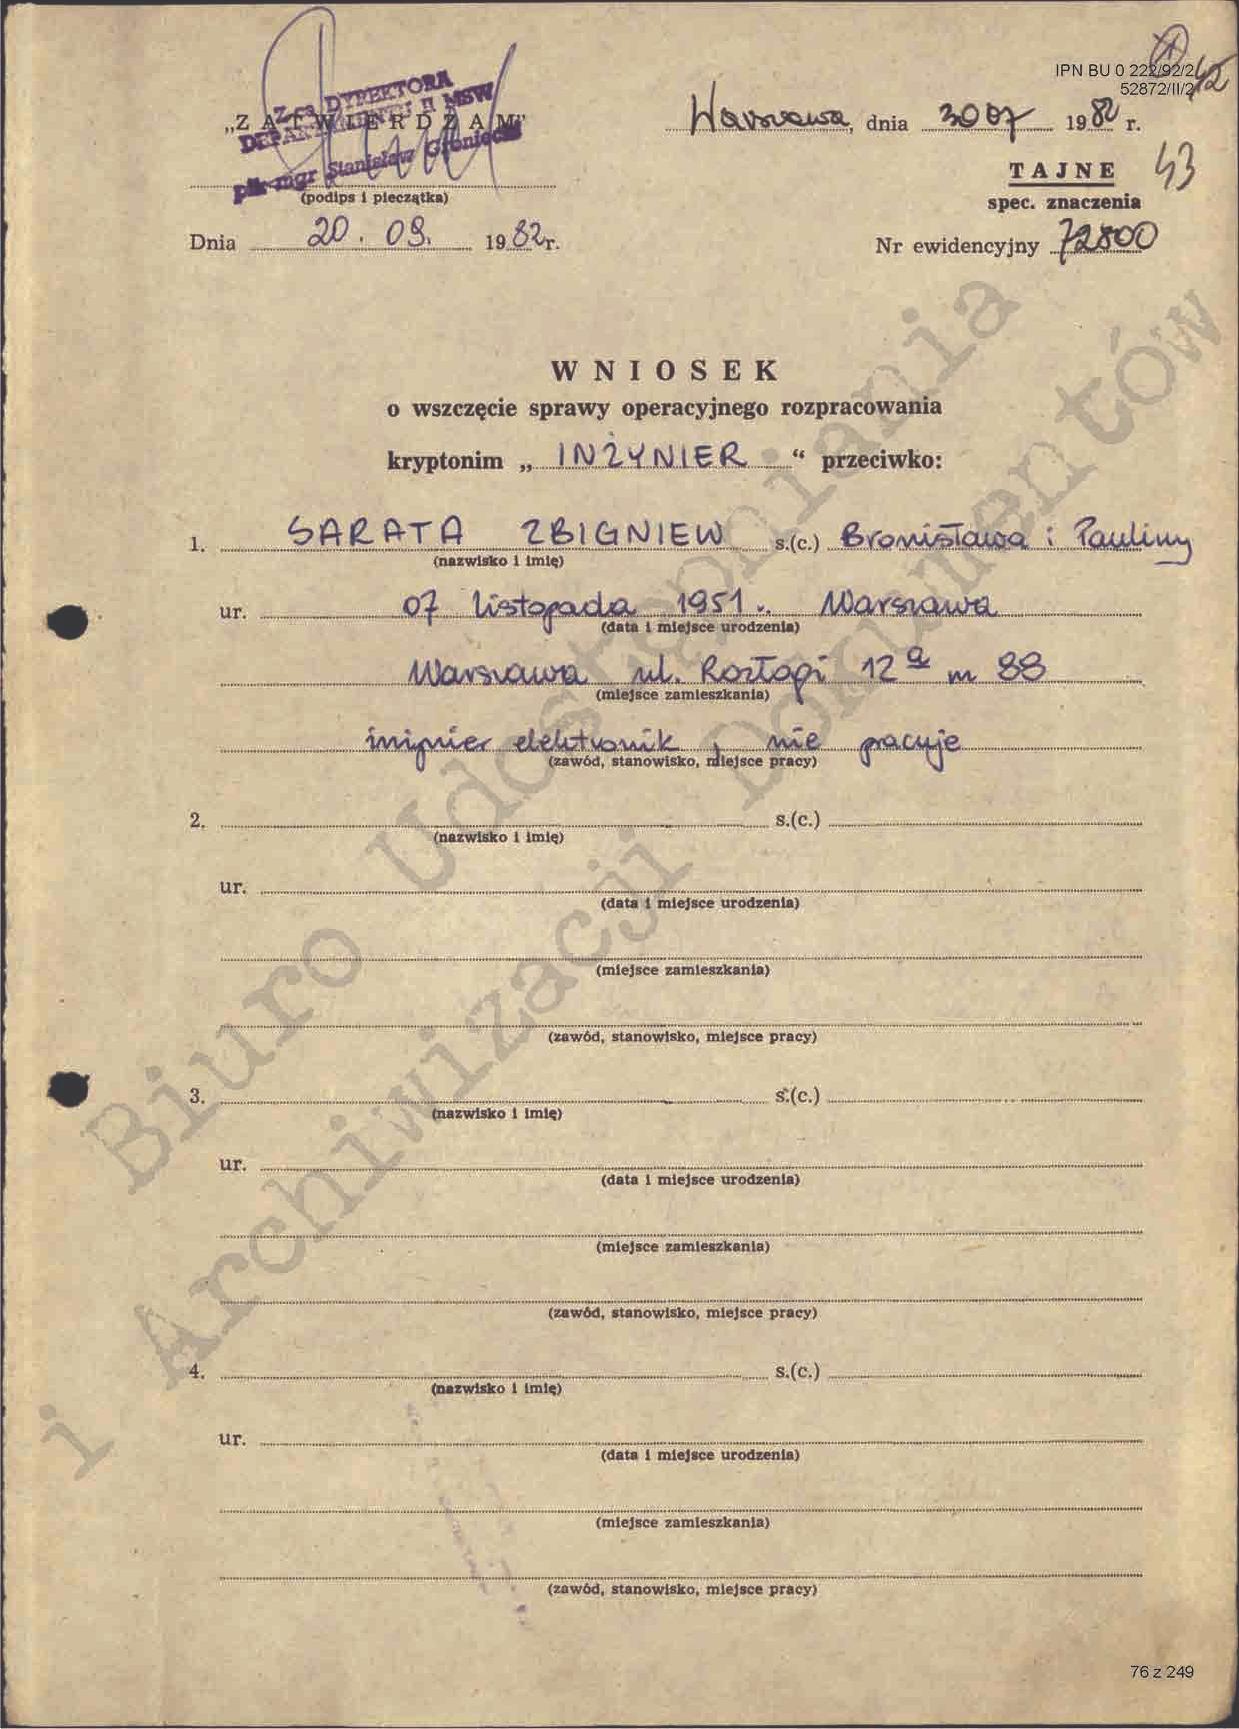 IPN BU 0 222/92/2
52872/II/2
42
Z-ca DYREKTORA
DEPARTAMENTU II MSW
„ZATWIERDZAM”
płk mgr Stanisław Groniecki
(podips i pieczątka)
Dnia 20.09. 1982r.
Warszawa, dnia 30 07 1982 r.
TAJNE
43
spec. znaczenia
Nr ewidencyjny 72800
WNIOSEK
o wszczęcie sprawy operacyjnego rozpracowania
kryptonim „ INŻYNIER “ przeciwko:
1. SARATA ZBIGNIEW s.(c.) Bronisława i Pauliny
(nazwisko i imię)
ur. 07 listopada 1951. Warszawa
(data i miejsce urodzenia)
Warszawa ul. Rozłogi 12 a m 88
(miejsce zamieszkania)
inżynier elektronik, nie pracuje
(zawód, stanowisko, miejsce pracy)
2. s.(c.)
(nazwisko i imię)
ur.
(data i miejsce urodzenia)
(miejsce zamieszkania)
(zawód, stanowisko, miejsce pracy)
3. s.(c.)
(nazwisko i imię)
ur.
(data i miejsce urodzenia)
(miejsce zamieszkania)
(zawód, stanowisko, miejsce pracy)
4. s.(c.)
(nazwisko i imię)
ur.
(data i miejsce urodzenia)
(miejsce zamieszkania)
(zawód, stanowisko, miejsce pracy)
Biuro Udostępniania
i Archiwizacji Dokumentów
76 z 249